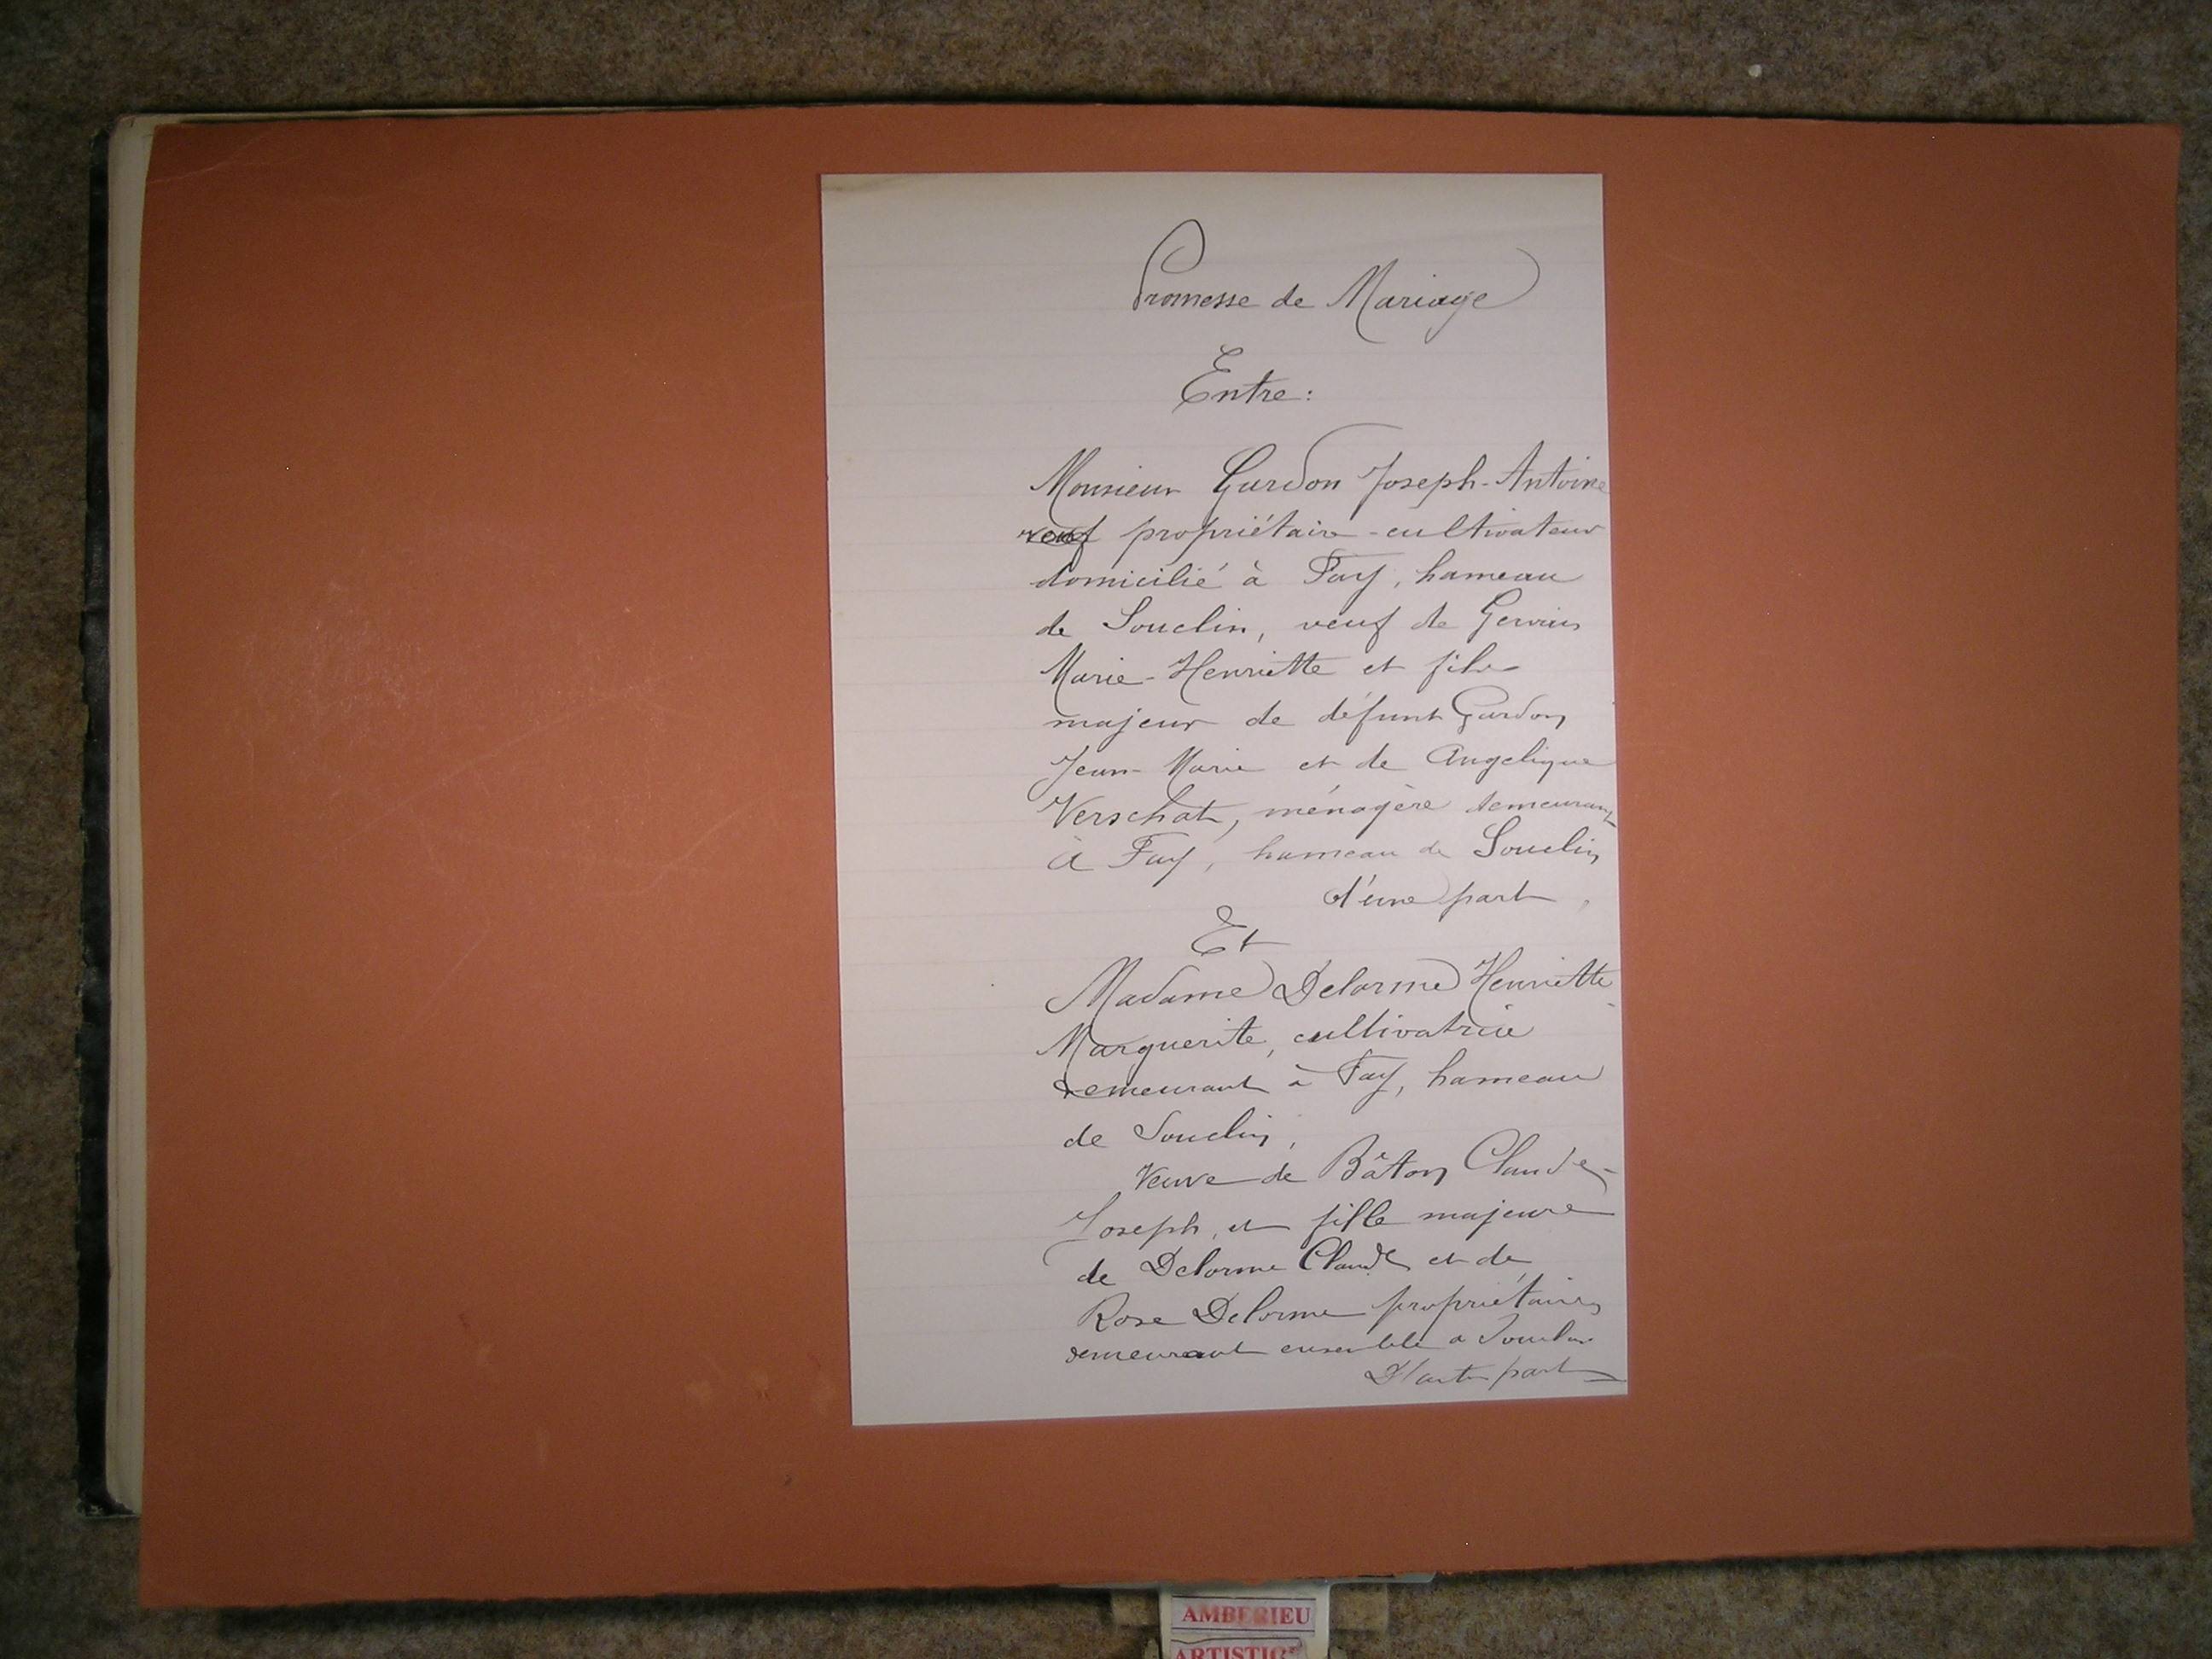 Promesse de Mariage
Entre:
Monsieur Gardon Joseph-Antoine
veuf propriétaire-cultivateur
domicilié à Fay, hameau
de Souclin, veuf de Gervais
Marie-Henriette et fils
majeur de défunt Gardon
Jean-Marie et de Angelique
Verschat, ménagère demeurant
à Fay, hameau de Souclin
d'une part,
Et
Madame Delorme Henriette
Marguerite, cultivatrice
demeurant à Fay, hameau
de Souclin,
Veuve de Bâton Claude-
Joseph, et fille majeure
de Delorme Claude et de
Rose Delorme propriétaires
demeurant ensemble a Souclin
D'autre part
AMBERIEU